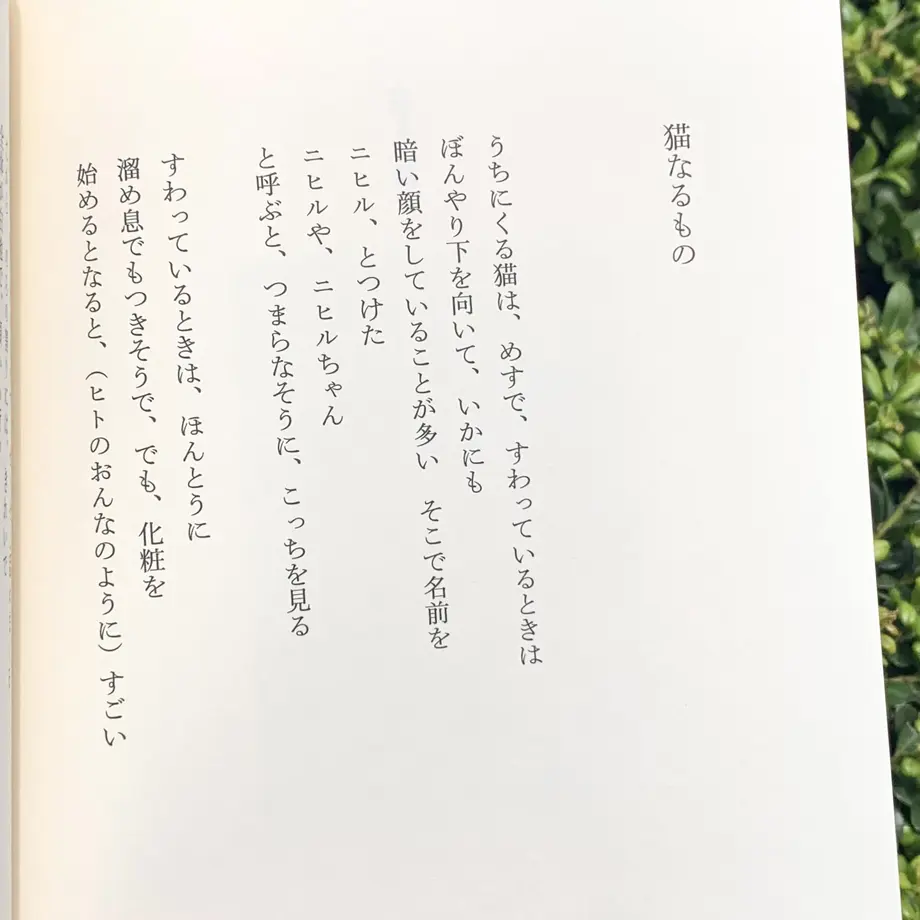 猫なるもの
うちにくる猫は、めすで、すわっているときは
ぼんやり下を向いて、いかにも
暗い顔をしていることが多い　そこで名前を
ニヒル、とつけた
ニヒルや、ニヒルちゃん
と呼ぶと、つまらなそうに、こっちを見る
すわっているときは、ほんとうに
溜め息でもつきそうで、でも、化粧を
始めるとなると、（ヒトのおんなのように）すごい